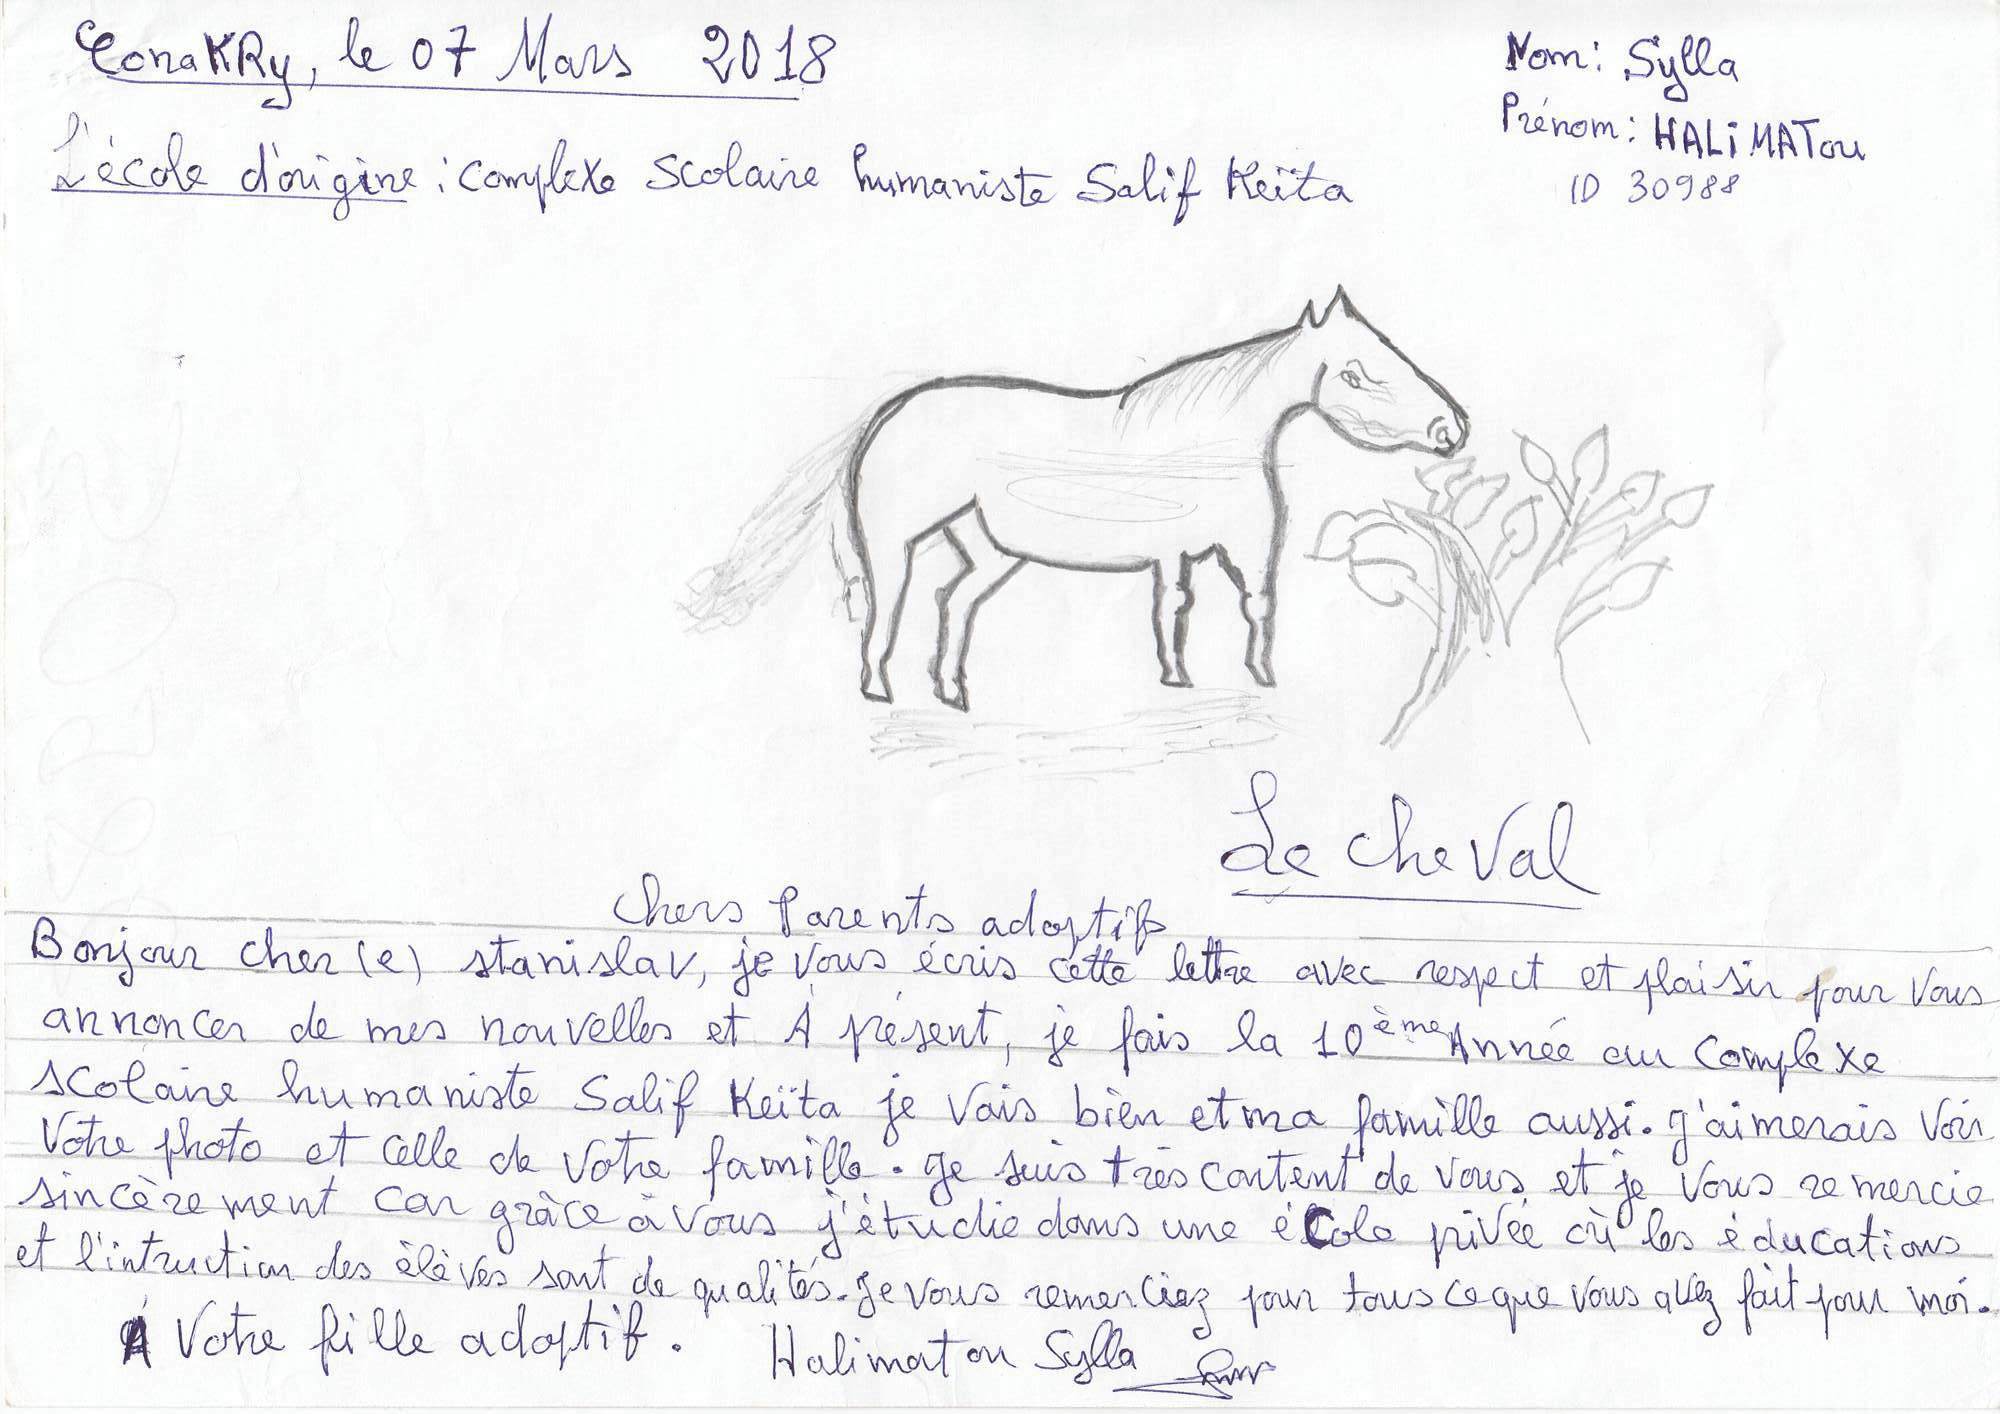 ConaKRy, le 07 Mars 2018
Nom: Sylla
Prénom: HALiMATou
ID 30988
L'école d'origine : complexe scolaire humaniste Salif Keïta
Le cheval
Chers Parents adoptifs
Bonjour cher(e) stanislav, je vous écris cette lettre avec respect et plaisir pour vous
annoncer de mes nouvelles et À présent, je fais la 10ème Année au complexe
scolaire humaniste Salif Keïta je vais bien et ma famille aussi. j'aimerais voir
votre photo et celle de votre famille. je suis très content de vous et je vous remercie
sincèrement car grâce à vous j'étudie dans une école privée où les éducations
et l'intruction des élèves sont de qualités. je vous remerciez pour tous ce que vous avez fait pour moi.
À Votre fille adoptif. Halimatou Sylla